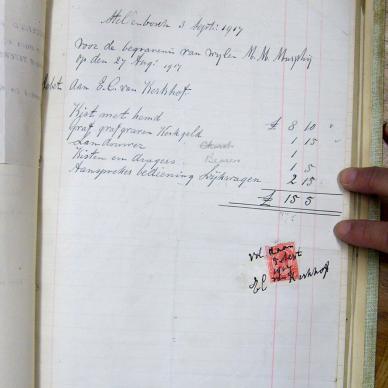 Stellenbosch 3 Sept. 1917
voor de begrafenis van wylen M. M. Murphy
op den 27 Aug. 1917
Aan E. C. van Kerkhof
Kist met hemd £ 8 10 "
Graf grafgraven Kerkgeld 1 15 "
Landouwer 1
Kisten en dragers 1 5
Aansprekers bediening Lijkwagen 2 15
£ 15 5
voldaan
3 Sept
1917
E C v Kerkhof